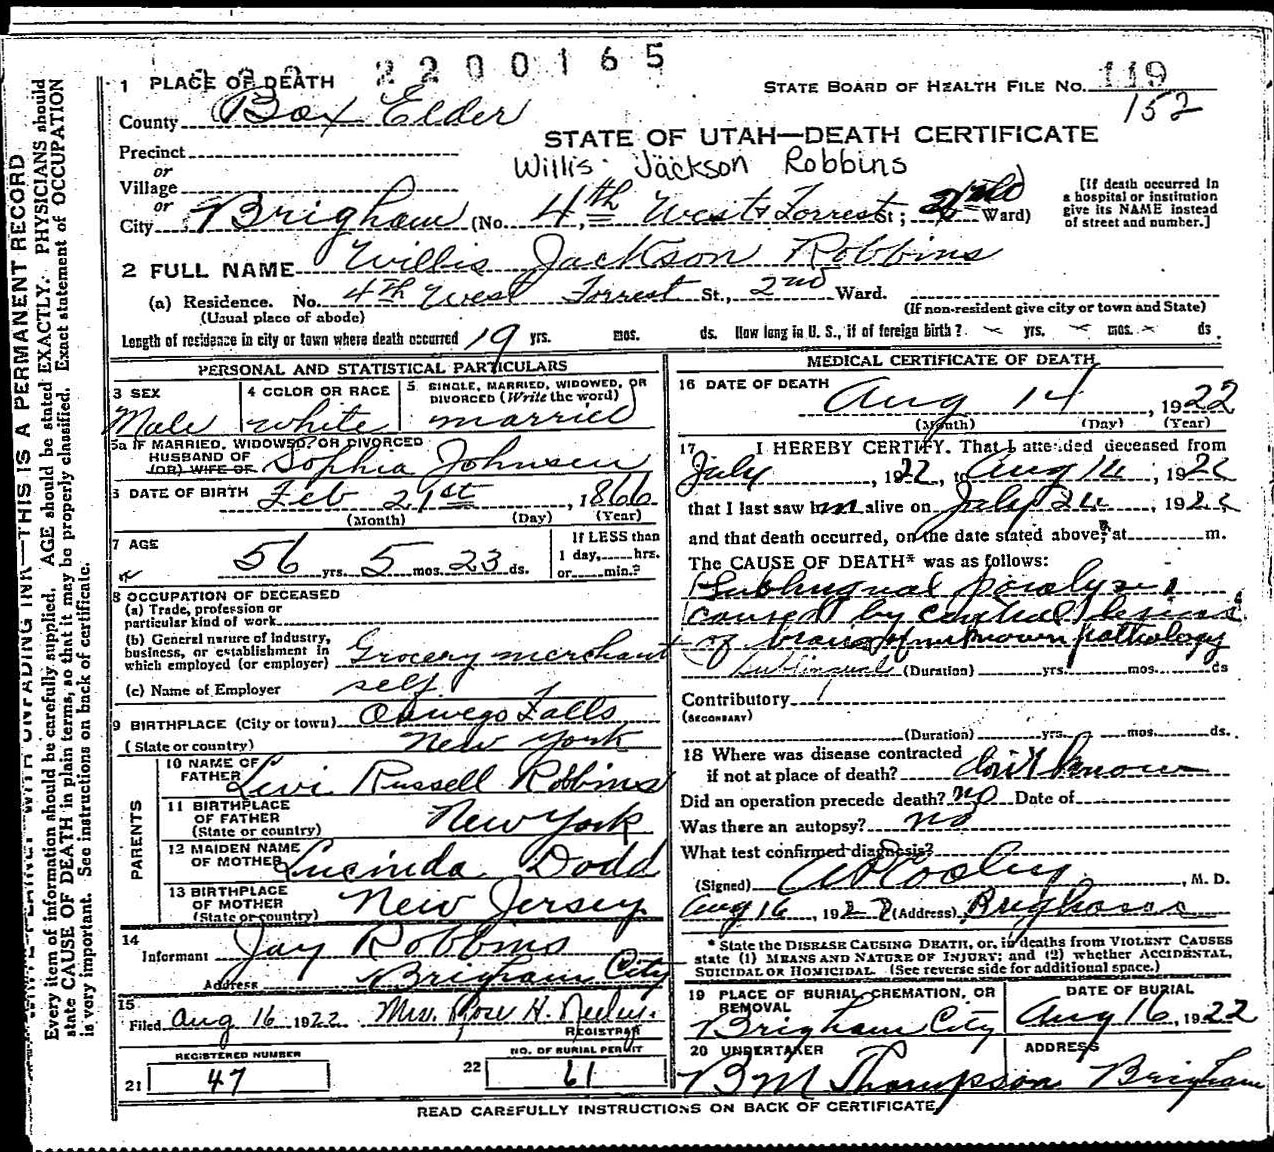 2200165
1 PLACE OF DEATH
STATE BOARD OF HEALTH FILE NO. 119
152
County Box Elder
STATE OF UTAH—DEATH CERTIFICATE
Precinct
Willis Jackson Robbins
or
Village
or
City Brigham (No. 4th West & Forrest St; 2nd Ward)
[If death occurred in a hospital or institution give its NAME instead of street and number.]
2 FULL NAME Willis Jackson Robbins
(a) Residence. No. 4th West Forrest St., 2nd Ward.
(Usual place of abode) (If non-resident give city or town and State)
Length of residence in city or town where death occurred 19 yrs. mos. ds. How long in U. S., if of foreign birth? yrs. mos. ds
PERSONAL AND STATISTICAL PARTICULARS
3 SEX Male
4 COLOR OR RACE white
5 SINGLE, MARRIED, WIDOWED, OR DIVORCED (Write the word) married
5a IF MARRIED, WIDOWED, OR DIVORCED
HUSBAND OF
(OR) WIFE OF Sophia Johnsen
6 DATE OF BIRTH Feb 21st, 1866
(Month) (Day) (Year)
7 AGE 56 yrs. 5 mos. 23 ds.
If LESS than 1 day, hrs. or min.?
8 OCCUPATION OF DECEASED
(a) Trade, profession or particular kind of work
(b) General nature of industry, business, or establishment in which employed (or employer) Grocery merchant
(c) Name of Employer self
9 BIRTHPLACE (City or town) Oswego Falls
(State or country) New York
PARENTS
10 NAME OF FATHER Levi Russell Robbins
11 BIRTHPLACE OF FATHER (State or country) New York
12 MAIDEN NAME OF MOTHER Lucinda Dodd
13 BIRTHPLACE OF MOTHER (State or country) New Jersey
14
Informant Jay Robbins
Address Brigham City
15
Filed Aug 16 1922 Mrs. Rose H.
REGISTRAR
REGISTERED NUMBER
21 47
NO. OF BURIAL PERMIT
22 61
MEDICAL CERTIFICATE OF DEATH
16 DATE OF DEATH Aug 14, 1922
(Month) (Day) (Year)
17 I HEREBY CERTIFY, That I attended deceased from
July, 1922, to Aug 14, 192
that I last saw him alive on July 24, 192
and that death occurred, on the date stated above, at m.
The CAUSE OF DEATH* was as follows:
Sublingual paralysis
caused by central lesions
of brain of unknown pathology
Sublingual (Duration) yrs. mos. ds
Contributory
(SECONDARY)
(Duration) yrs. mos. ds.
18 Where was disease contracted
if not at place of death? don't know
Did an operation precede death? no Date of
Was there an autopsy? no
What test confirmed diagnosis?
(Signed) Cooley, M. D.
Aug 16, 1922 (Address) Brigham
* State the DISEASE CAUSING DEATH, or, in deaths from VIOLENT CAUSES
state (1) MEANS AND NATURE OF INJURY; and (2) whether ACCIDENTAL,
SUICIDAL OR HOMICIDAL. (See reverse side for additional space.)
19 PLACE OF BURIAL, CREMATION, OR REMOVAL Brigham City
DATE OF BURIAL Aug 16, 1922
20 UNDERTAKER B M Thompson
ADDRESS Brigham
READ CAREFULLY INSTRUCTIONS ON BACK OF CERTIFICATE
UNFADING INK—THIS IS A PERMANENT RECORD
Every item of information should be carefully supplied. AGE should be stated EXACTLY. PHYSICIANS should
state CAUSE OF DEATH in plain terms, so that it may be properly classified. Exact statement of OCCUPATION
is very important. See instructions on back of certificate.